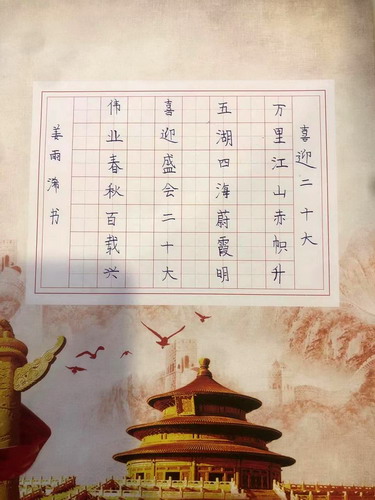 喜迎二十大
万里江山赤帜升
五湖四海蔚霞明
喜迎盛会二十大
伟业春秋百载兴
姜雨沛书